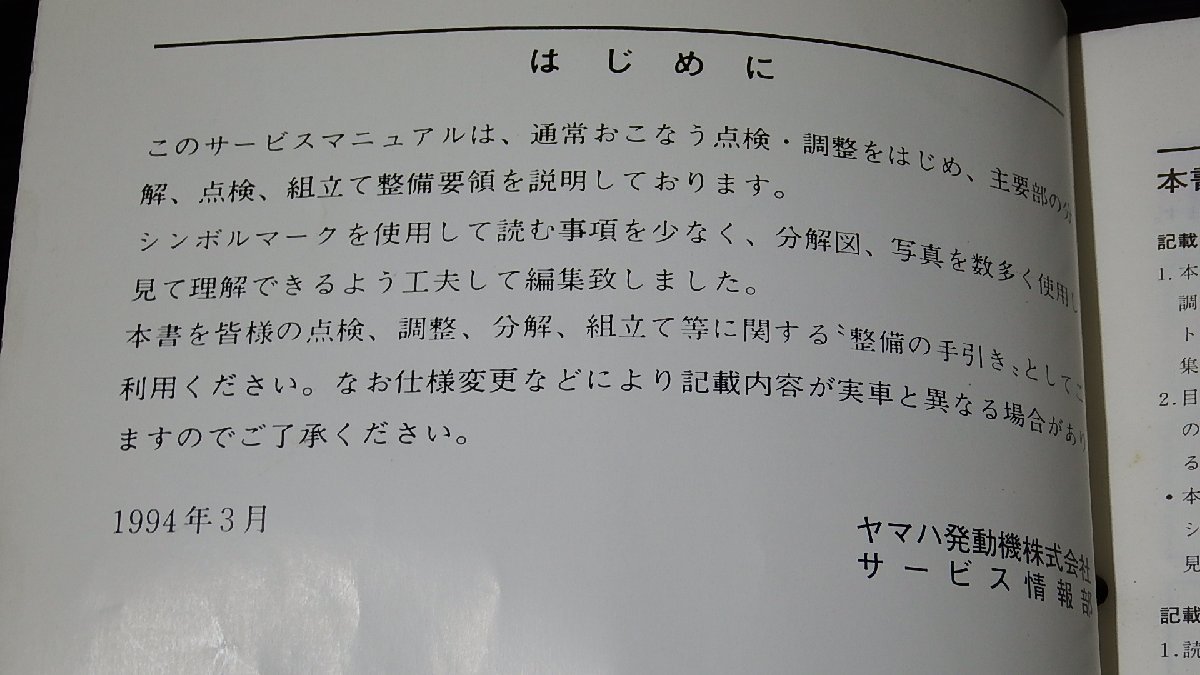 はじめに
このサービスマニュアルは、通常おこなう点検・調整をはじめ、主要部の分
解、点検、組立て整備要領を説明しております。
シンボルマークを使用して読む事項を少なく、分解図、写真を数多く使用し
見て理解できるよう工夫して編集致しました。
本書を皆様の点検、調整、分解、組立て等に関する〝整備の手引き〟としてご
利用ください。なお仕様変更などにより記載内容が実車と異なる場合があり
ますのでご了承ください。
1994年3月
ヤマハ発動機株式会社
サービス情報部
本書
記載
1.本
調
ト
集
2.目
の
る
・本
シ
見
記載
1.読